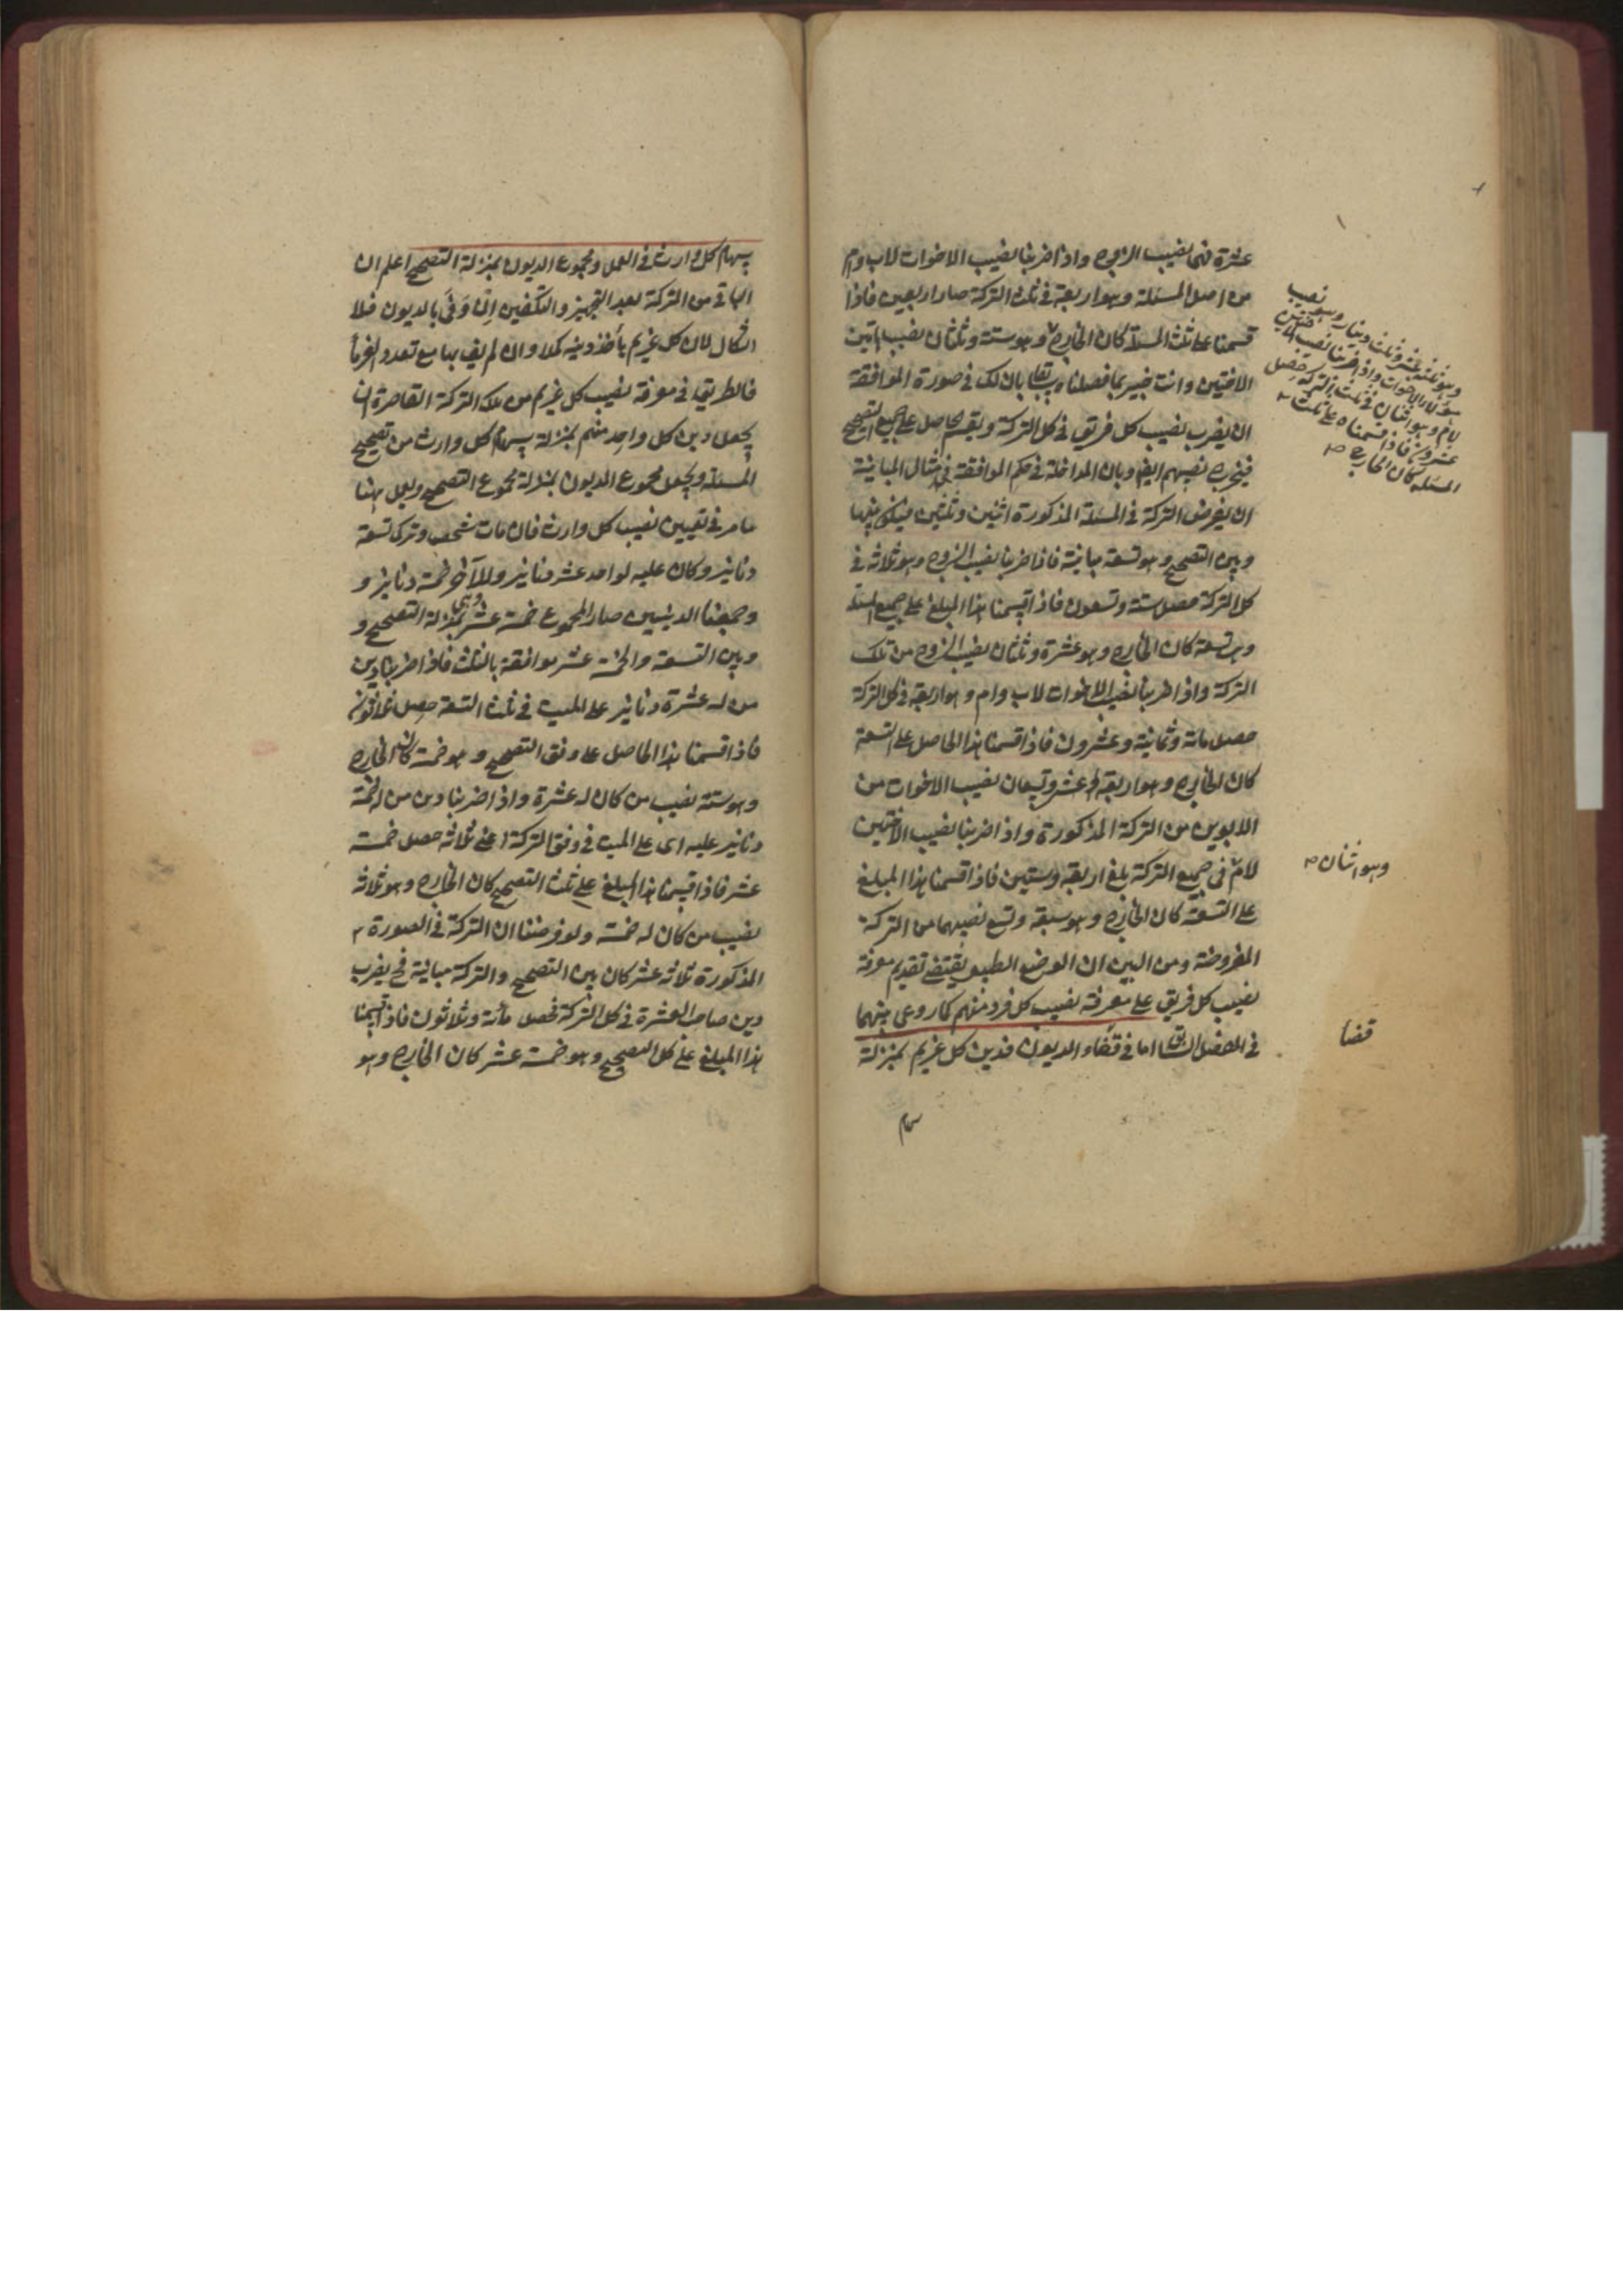 عشرة فهى نصيب الزوج واذا ضربنا نصيب الاخوات لاب وام
من اصل المسئلة وهو اربعة فى ثلث التركة صار اربعين فاذا
قسمنا على ثلث المسئلة كان الخارج وهو ستة وثلثان نصيب
الاختين وانت خبير بما فصلناه بان لك فى صورة الموافقة
ان يضرب نصيب كل فريق فى كل التركة ويقسم الحاصل على جميع التصحيح
فيخرج نصيبهم ايضا وبان المداخلة فى حكم الموافقة مثال المباينة
ان يفرض التركة فى المسئلة المذكورة اثنين وثلثين فيكون بينها
وبين التصحيح وهو تسعة مباينة فاذا ضربنا نصيب الزوج وهو ثلاثة فى
كل التركة حصل ستة وتسعون فاذا قسمنا هذا المبلغ على جميع المسئلة
وهى تسعة كان الخارج وهو عشرة وثلثان نصيب الزوج من تلك
التركة واذا ضربنا نصيب الاخوات لاب وام وهو اربعة فى كل التركة
حصل مائة وثمانية وعشرون فاذا قسمنا هذا الحاصل على التسعة
كان الخارج وهو اربعة عشر وتسعان نصيب الاخوات من
الابوين من التركة المذكورة واذا ضربنا نصيب الاختين
لام فى جميع التركة بلغ اربعة وستين فاذا قسمنا هذا المبلغ
على التسعة كان الخارج وهو سبعة وتسع نصيبهما من التركة
المفروضة ومن البين ان الوضع الطبيعى يقتضى تقديم معرفة
نصيب كل فريق على معرفة نصيب كل فرد منهم كما روعى بينهما
فى الفصل السابق اما فى قضاء الديون فدين كل غريم بمنزلة
سهام
وهو ثلثة عشر وثلث دينار وهو نصيب
هؤلاء الاخوات واذا ضربنا نصيب الاختين
لام وهو اثنان فى ثلث التركة حصل
عشرون فاذا قسمناه على ثلث
المسئلة كان الخارج
وهو اثنان
قضا
سهام كل وارث فى العمل ومجموع الديون بمنزلة التصحيح اعلم ان
الباقى من التركة بعد التجهيز والتكفين ان وفى بالديون فلا
اشكال لان كل غريم يأخذ دينه كملا وان لم يف بها مع تعدد الغرماء
فالطريق فى معرفة نصيب كل غريم من تلك التركة القاصرة ان
يجعل دين كل واحد منهم بمنزلة سهام كل وارث من تصحيح
المسئلة ويجعل مجموع الديون بمنزلة مجموع التصحيح ويعمل ههنا
ما مر فى تعيين نصيب كل وارث فان مات شخص وترك تسعة
دنانير وكان عليه لواحد عشر دنانير وللآخر خمسة دنانير و
وجمعنا الدينين صار المجموع خمسة عشر وهى بمنزلة التصحيح و
وبين التسعة والخمسة عشر موافقة بالثلث فاذا ضربنا دين
من له عشرة دنانير على الميت فى ثلث التسعة حصل ثلاثون
فاذا قسمنا هذا الحاصل على وفق التصحيح وهو خمسة كان الخارج
وهو ستة نصيب من كان له عشرة واذا ضربنا دين من له خمسة
دنانير عليه اى على الميت فى وفق التركة اعنى ثلاثة حصل خمسة
عشر فاذا قسمنا هذا المبلغ على ثلث التصحيح كان الخارج وهو ثلاثة
نصيب من كان له خمسة ولو فرضنا ان التركة فى الصورة
المذكورة ثلاثة عشر كان بين التصحيح والتركة مباينة فح يضرب
دين صاحب العشرة فى كل التركة فحصل مائة وثلاثون فاذا قسمنا
هذا المبلغ على كل التصحيح وهو خمسة عشر كان الخارج وهو